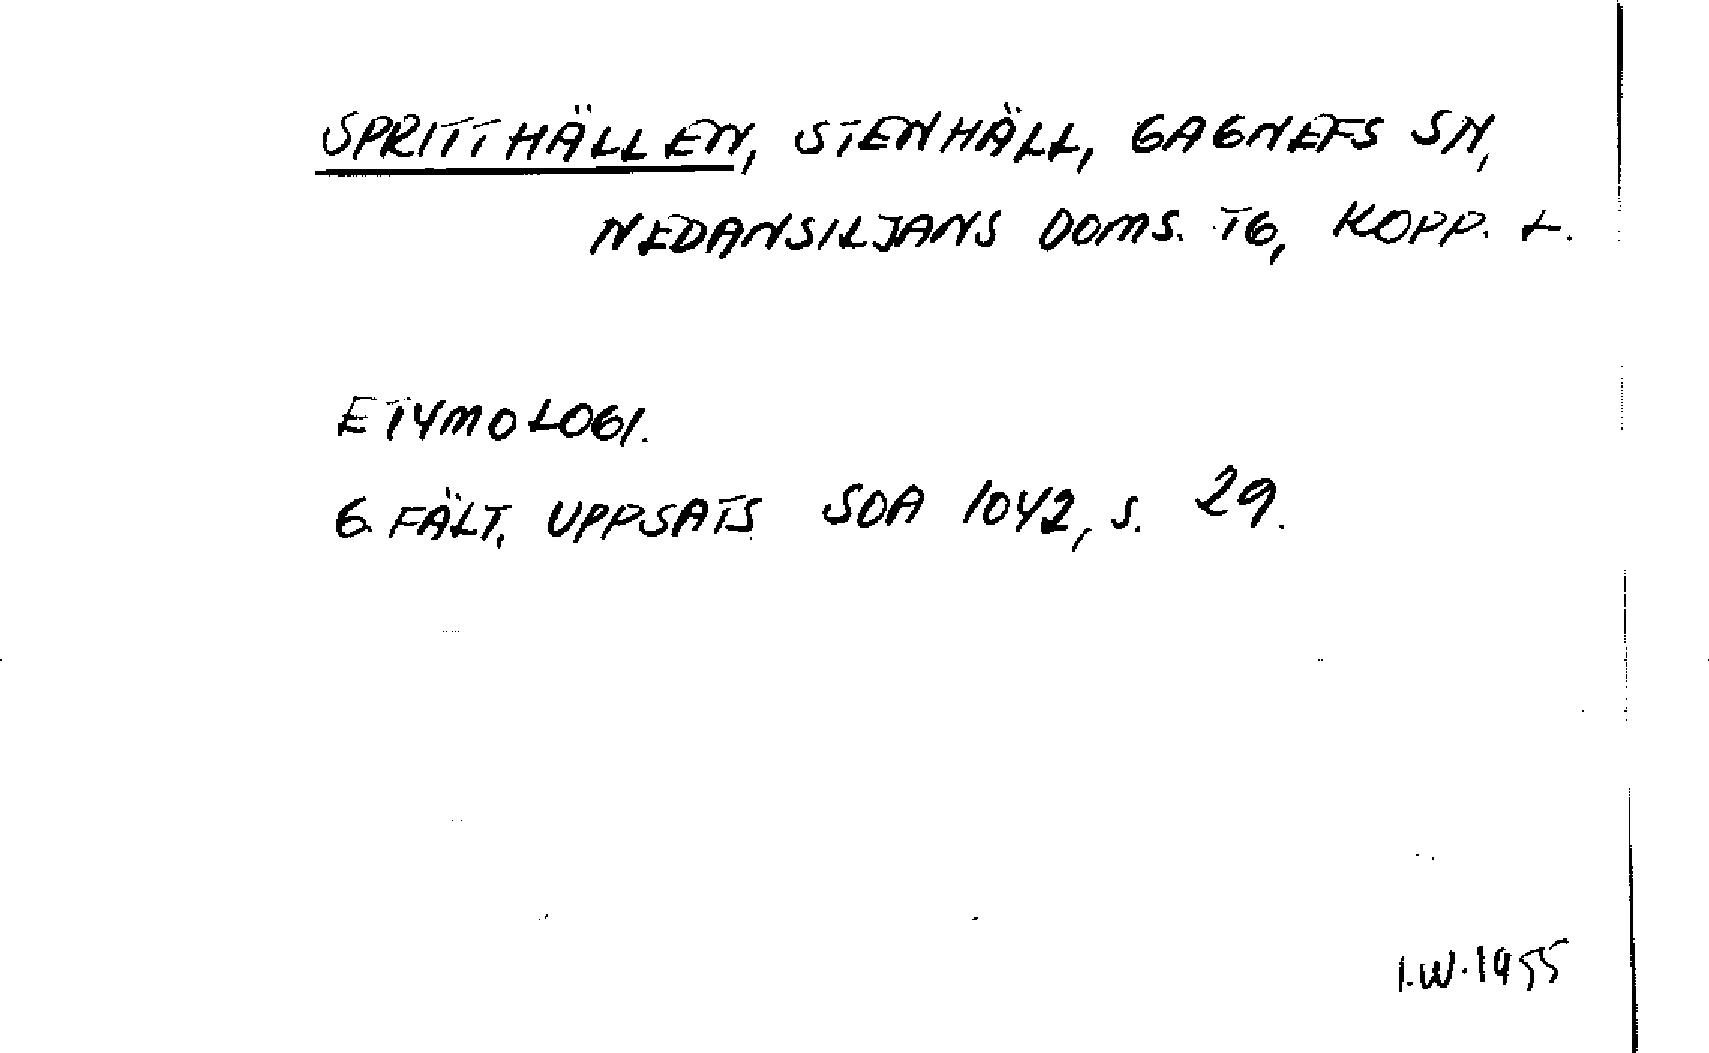 SPRITTHÄLLEN, STENHÄLL, GAGNEFS SN,
NEDANSILJANS DOMS. TG, KOPP. L.
ETYMOLOGI.
G. FÄLT, UPPSATS SOA 1042, s. 29.
I.W. 1955